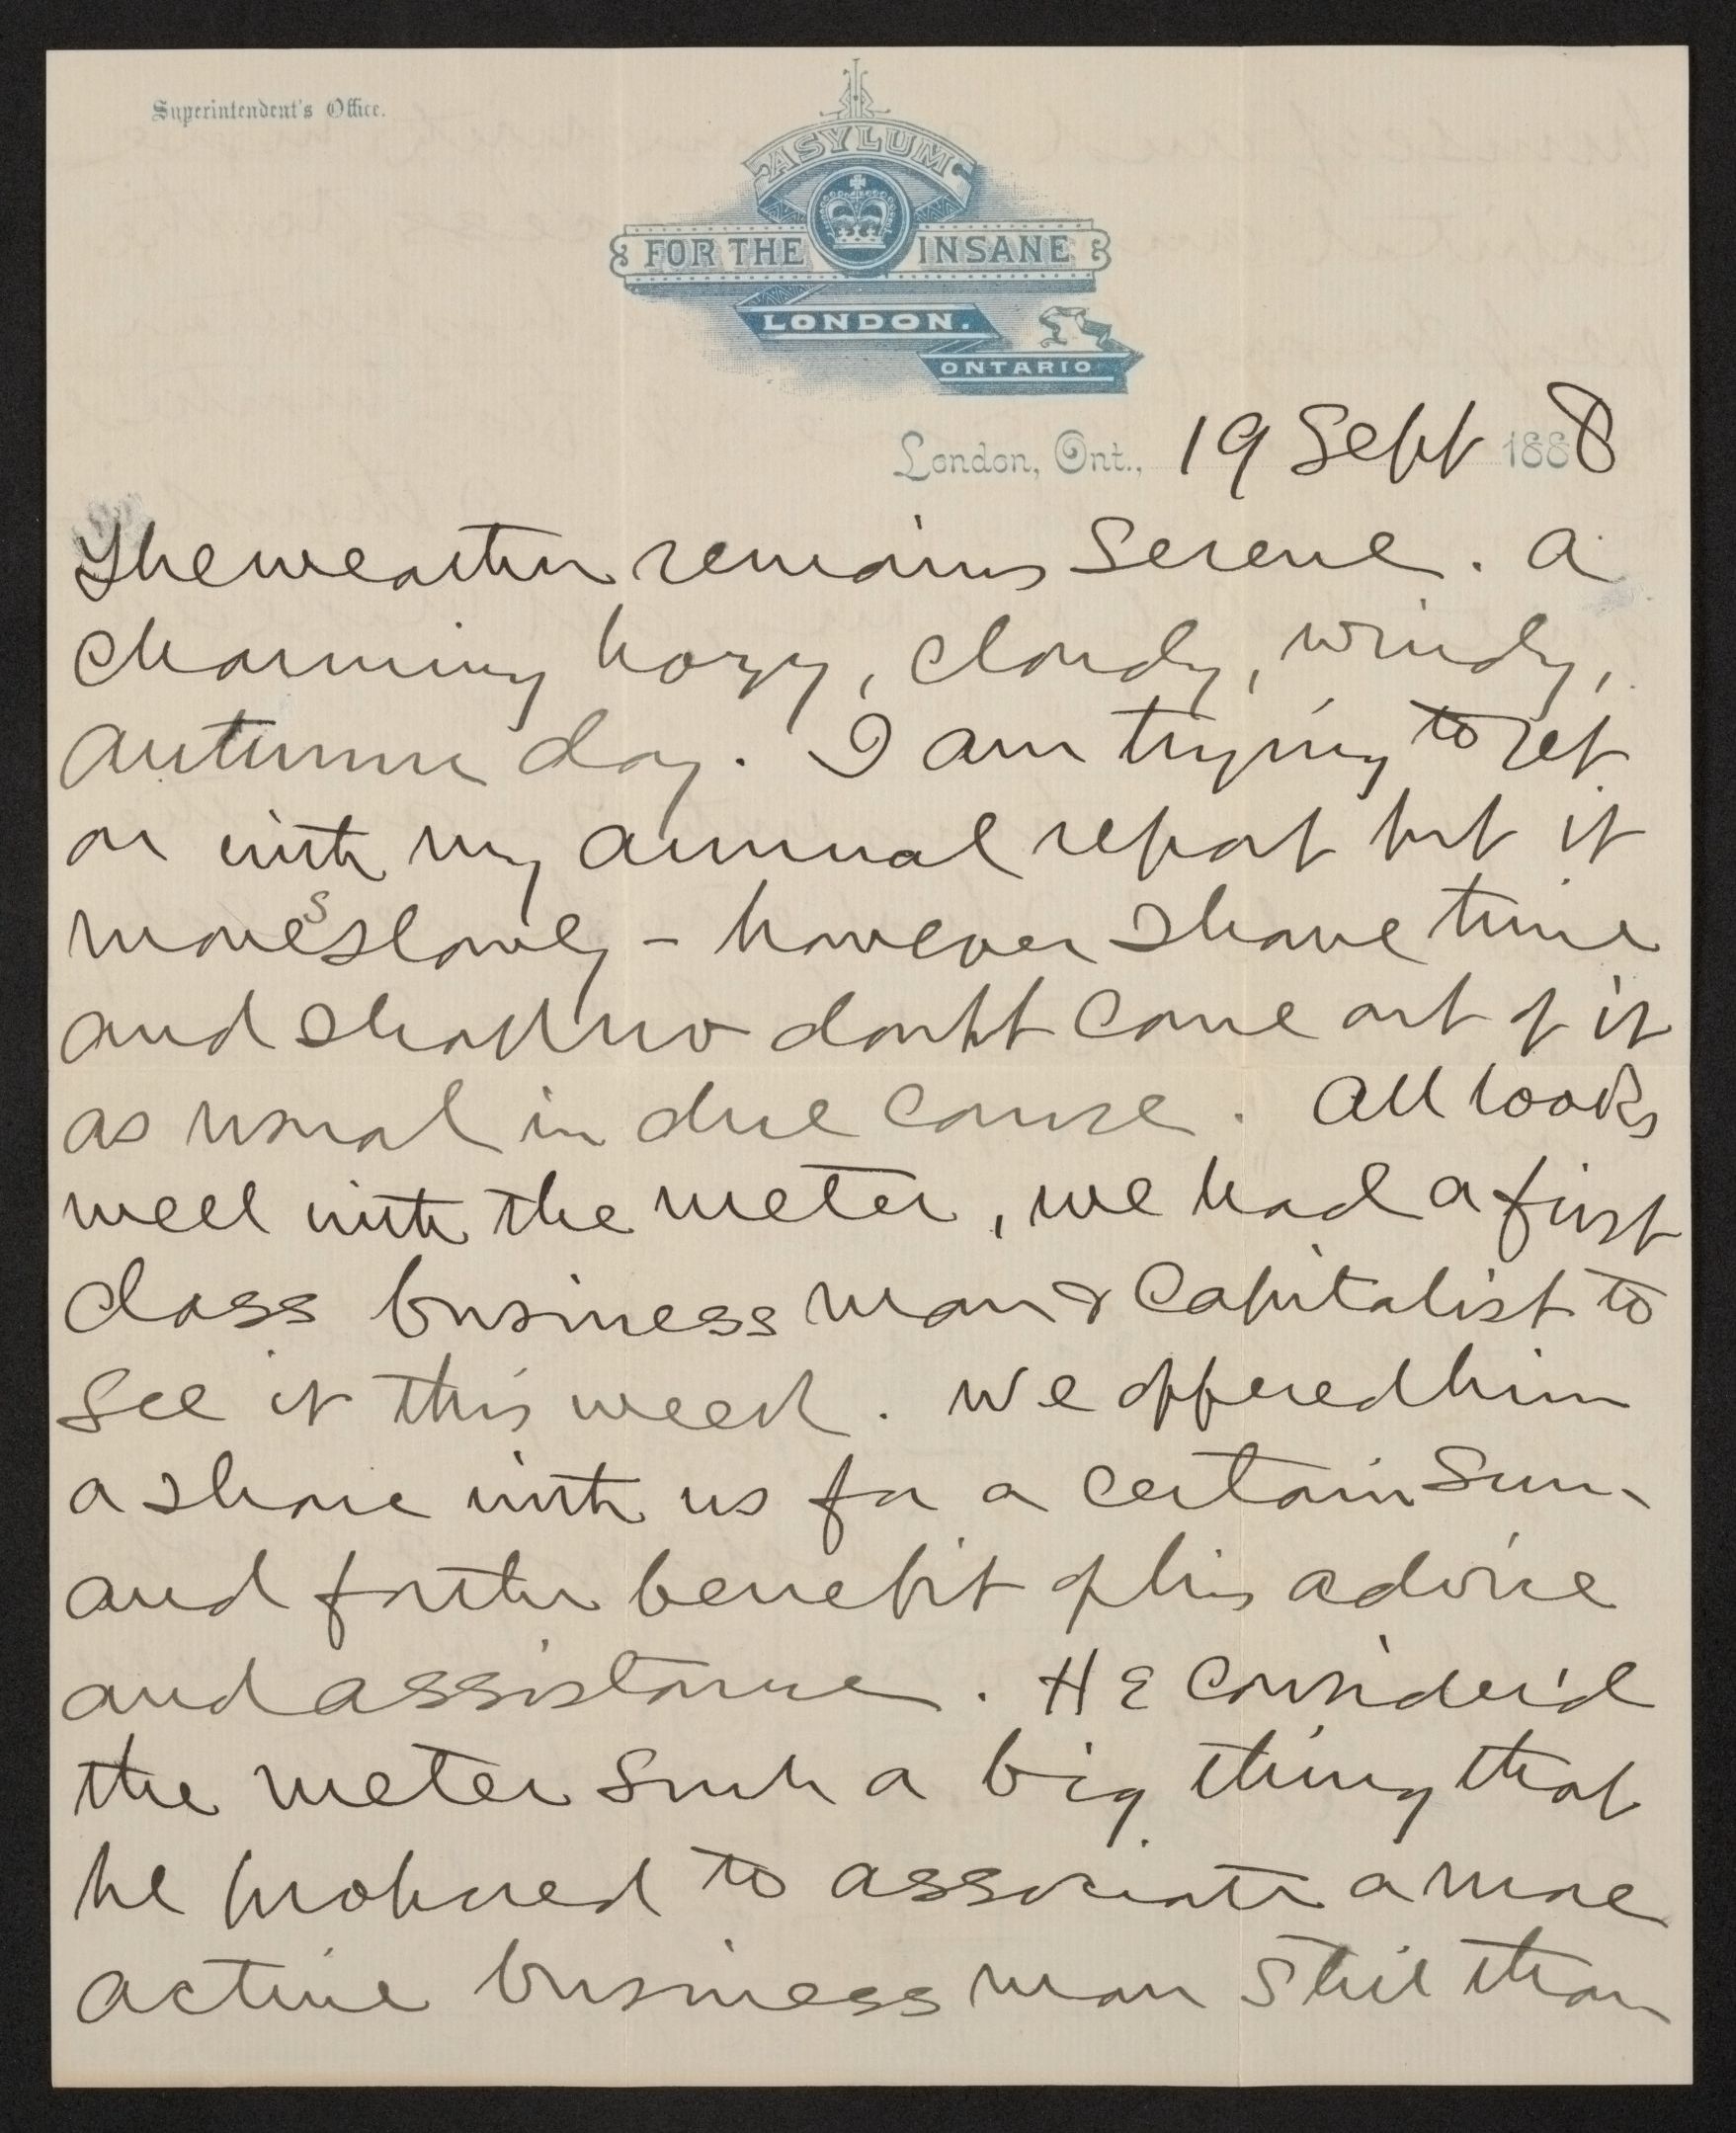 Superintendent's Office.
ASYLUM
FOR THE INSANE
LONDON.
ONTARIO
London, Ont., 19 Sept 1888
The weather remains serene. A
charming hazy, cloudy, windy,
autumn day. I am trying to get
on with my annual report but it
moves slowly – however I have time
and shall no doubt come out of it
as usual in due course. All looks
well with the meter, we had a first
class business man & capitalist to
see it this week. We offered him
a share with us for a certain sum
and for the benefit of his advice
and assistance. He consider'd
the meter such a big thing that
he proposed to associate a more
active business man still than